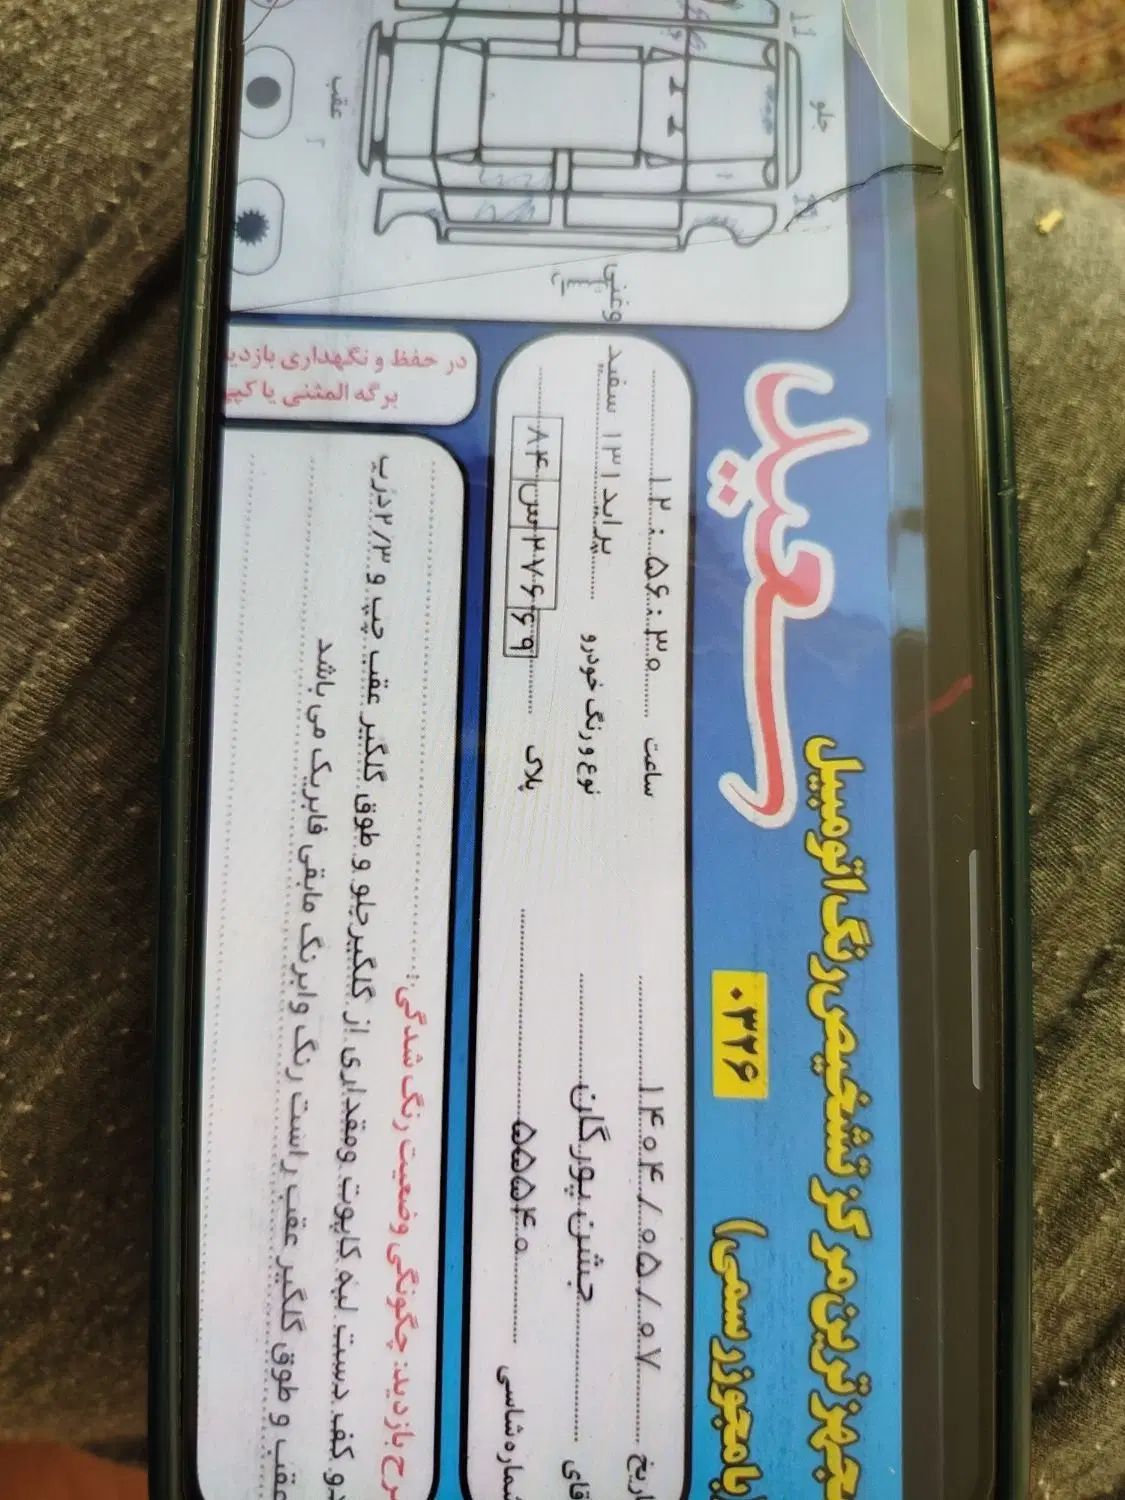 مجهزترین مرکز تشخیص رنگ اتومبیل
سعید
(با مجوز رسمی)
۰۳۲۶
تاریخ ۱۴۰۴/۰۵/۰۷ ساعت ۱۲:۵۶:۳۰
آقای جشن پورگان نوع و رنگ خودرو پراید ۱۳۱ سفید
شماره شاسی ۵۵۵۴۰ پلاک ۸۴ س ۲۷۶ ۶۹
شرح بازدید: چگونگی وضعیت رنگ شدگی:
دو کف دست لبه کاپوت ومقداری از گلگیرجلو و طوق گلگیر عقب چپ و ۲/۳درب
عقب و طوق گلگیر عقب راست رنگ وابرنگ مابقی فابریک می باشد
در حفظ و نگهداری بازدید
برگه المثنی یا کپی
جلو
عقب